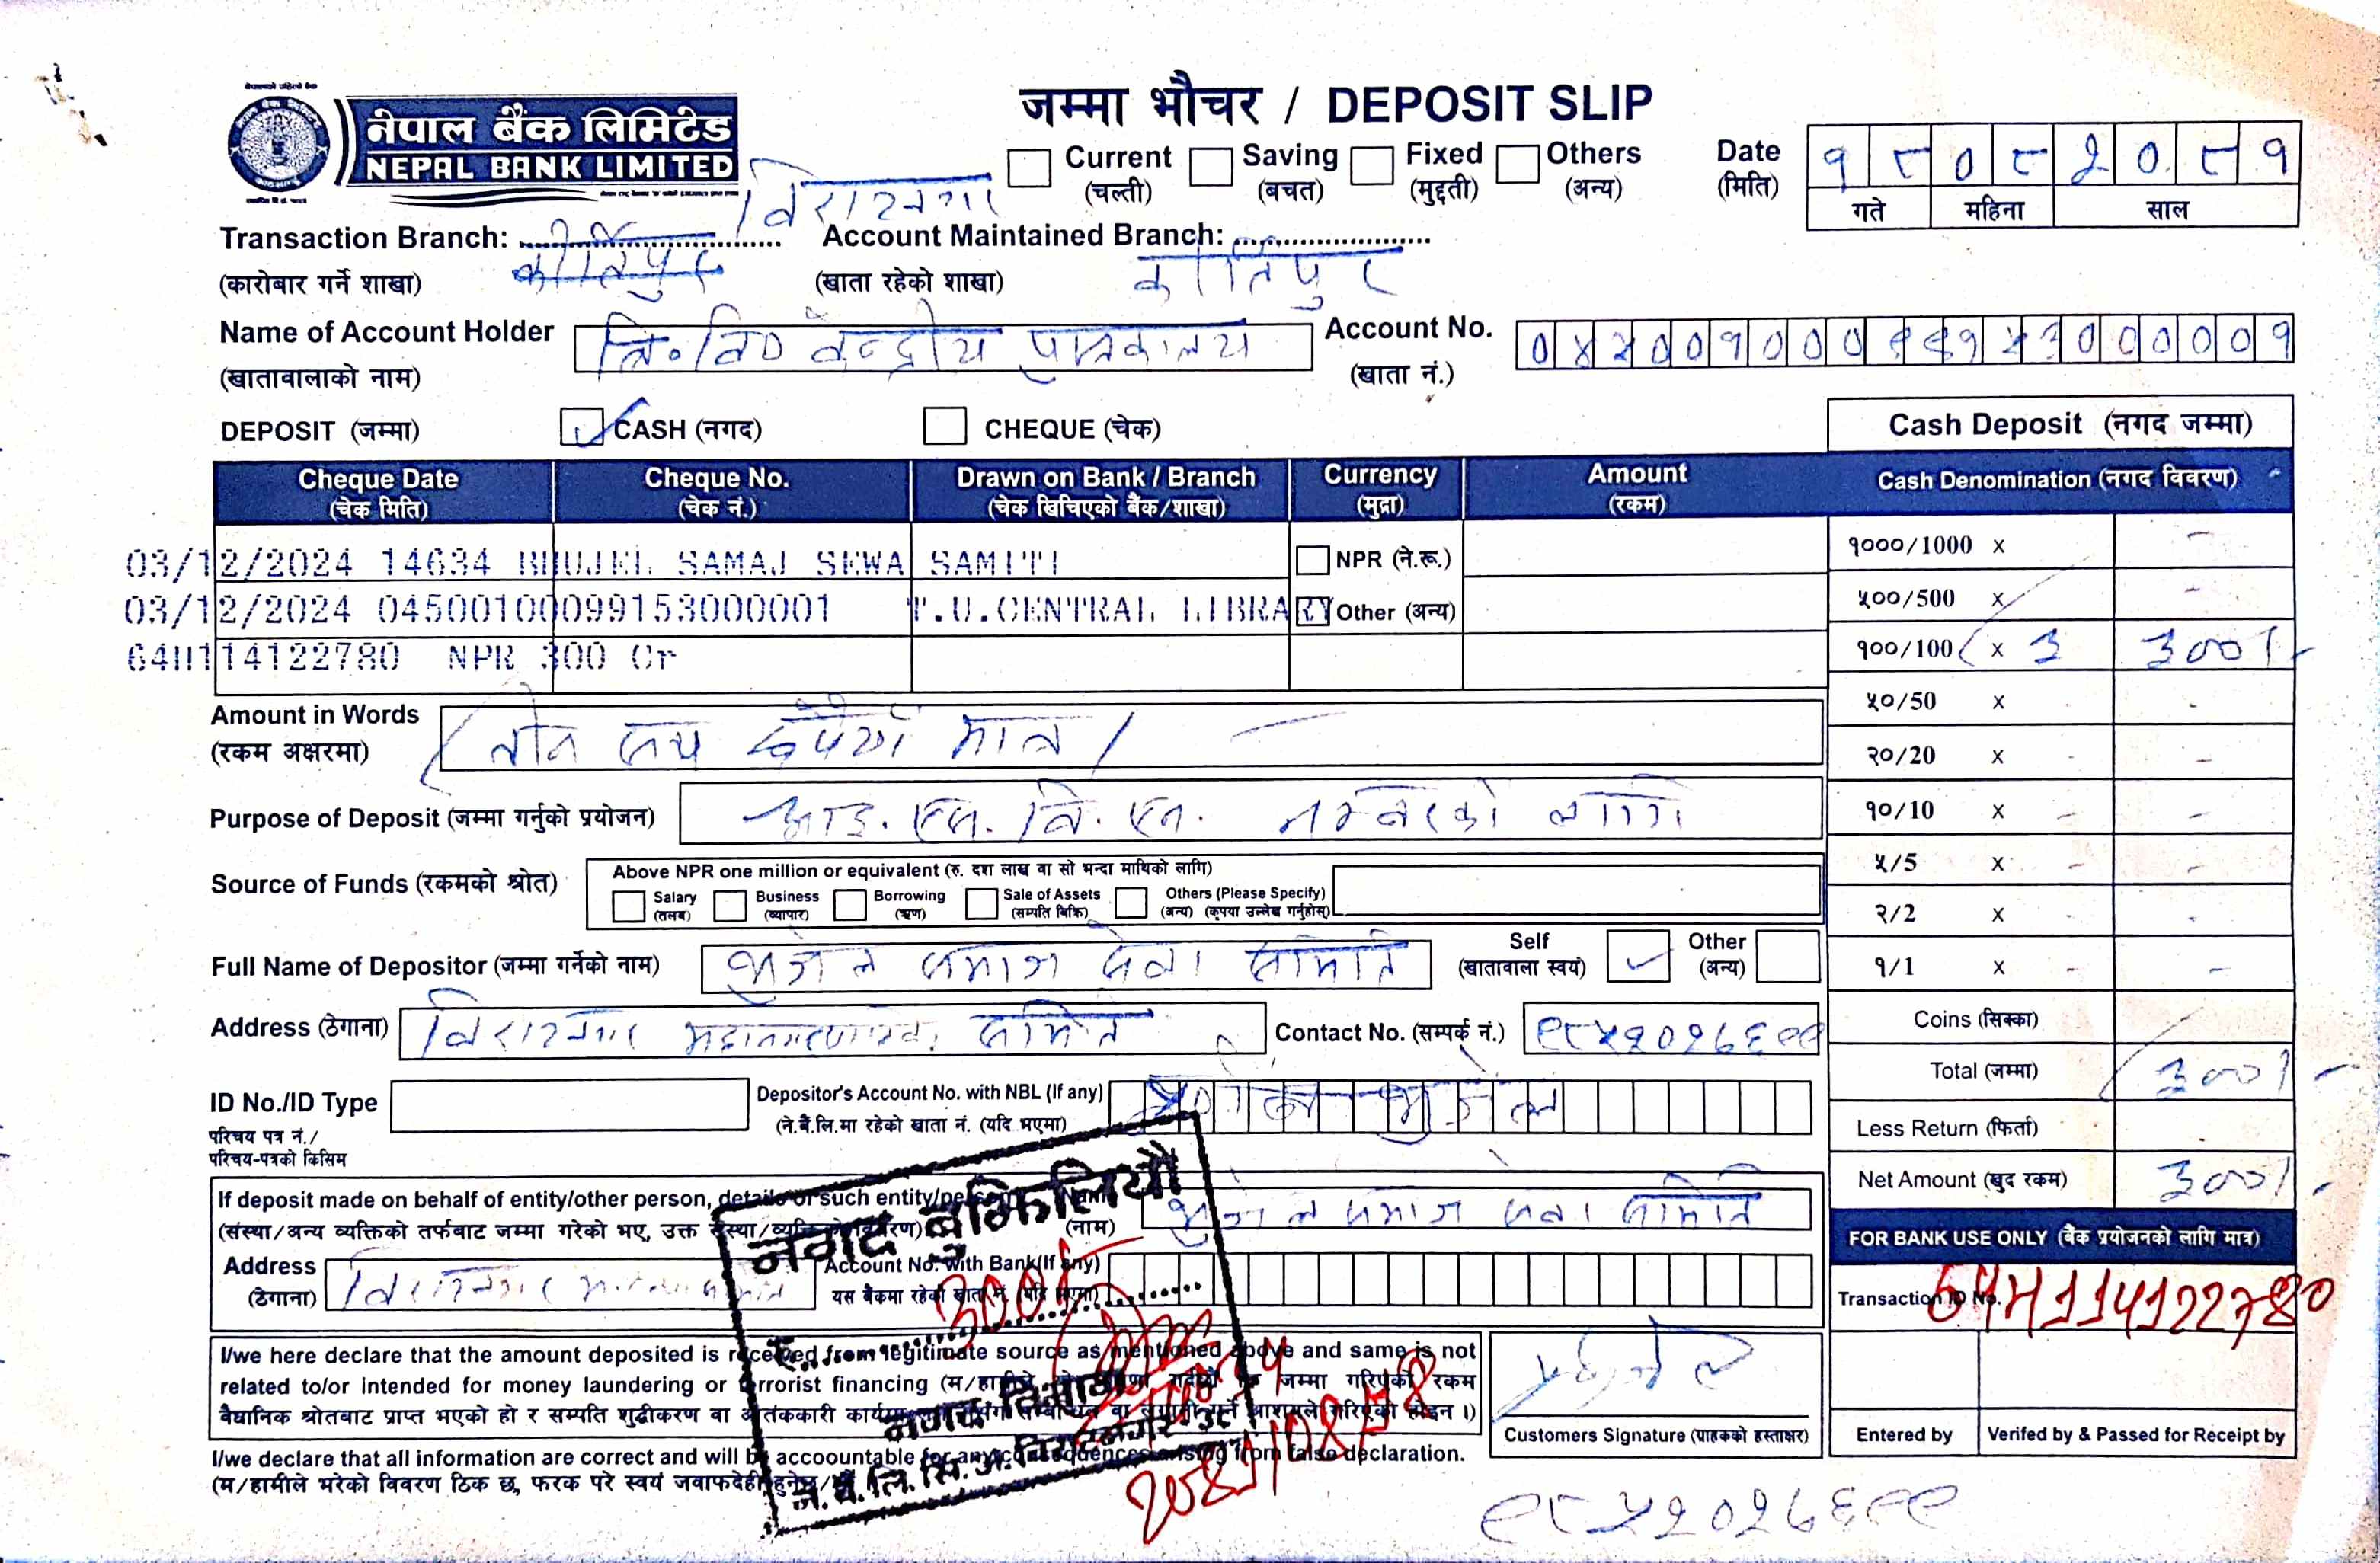 नेपाल बैंक लिमिटेड
NEPAL BANK LIMITED
जम्मा भौचर / DEPOSIT SLIP
Current (चल्ती) Saving (बचत) Fixed (मुद्दती) Others (अन्य)
Date (मिति) १ ८ ० ८ २ ० ८ १
गते महिना साल
विराटनगर
Transaction Branch: कीर्तिपुर Account Maintained Branch: कीर्तिपुर
(कारोबार गर्ने शाखा) (खाता रहेको शाखा)
Name of Account Holder त्रि॰ वि॰ केन्द्रीय पुस्तकालय Account No.
(खातावालाको नाम) (खाता नं.)
DEPOSIT (जम्मा) CASH (नगद) CHEQUE (चेक) Cash Deposit (नगद जम्मा)
Cheque Date Cheque No. Drawn on Bank / Branch Currency Amount Cash Denomination (नगद विवरण)
(चेक मिति) (चेक नं.) (चेक खिचिएको बैंक/शाखा) (मुद्रा) (रकम)
03/12/2024 14634 BHUJEL SAMAJ SEWA SAMITI NPR (ने.रू.)
03/12/2024 04500100099153000001 T.U.CENTRAL LIBRARY Other (अन्य)
64H114122780 NPR 300 Cr
१०००/1000 x -
५००/500 x -
१००/100 x 3 300/-
५०/50 x -
२०/20 x -
१०/10 x -
५/5 x -
२/2 x -
१/1 x -
Coins (सिक्का)
Total (जम्मा) 300/-
Less Return (फिर्ता)
Net Amount (खुद रकम) 300/-
Amount in Words तीन सय रुपैयाँ मात्र /
(रकम अक्षरमा)
Purpose of Deposit (जम्मा गर्नुको प्रयोजन) आइ. एस. बि. एन. नम्बरको लागि
Source of Funds (रकमको श्रोत) Above NPR one million or equivalent (रु. दश लाख वा सो भन्दा माथिको लागि)
Salary (तलब) Business (व्यापार) Borrowing (ऋण) Sale of Assets (सम्पति बिक्रि) Others (Please Specify) (अन्य) (कृपया उल्लेख गर्नुहोस्)
Full Name of Depositor (जम्मा गर्नेको नाम) भुजेल समाज सेवा समिति Self (खातावाला स्वयं) Other (अन्य)
Address (ठेगाना) विराटनगर समिति Contact No. (सम्पर्क नं.) ९८५२०२६६९९
ID No./ID Type Depositor's Account No. with NBL (If any) भुजेल
परिचय पत्र नं./ (ने.बैं.लि.मा रहेको खाता नं. (यदि भएमा)
परिचय-पत्रको किसिम
If deposit made on behalf of entity/other person, details of such entity/person Name
(संस्था/अन्य व्यक्तिको तर्फबाट जम्मा गरेको भए, उक्त संस्था/व्यक्तिको विवरण) (नाम) भुजेल समाज सेवा समिति
Address Account No. with Bank(If any)
(ठेगाना) विराटनगर यस बैंकमा रहेको खाता नं. (यदि भएमा)
नगद बुझिलियौं
रु. 300/-
नगद विभाग
2081/08/18
FOR BANK USE ONLY (बैंक प्रयोजनको लागि मात्र)
Transaction ID No. 64H114122780
I/we here declare that the amount deposited is received from legitimate source as mentioned above and same is not
related to/or intended for money laundering or terrorist financing जम्मा गरिएको रकम
वैधानिक श्रोतबाट प्राप्त भएको हो र सम्पति शुद्धीकरण वा आतंककारी
I/we declare that all information are correct and will be accoountable for any consequences arising from false declaration.
(म/हामीले भरेको विवरण ठिक छ, फरक परे स्वयं जवाफदेही हुनेछु/
Customers Signature (ग्राहकको हस्ताक्षर) Entered by Verifed by & Passed for Receipt by
९८५२०२६६९९